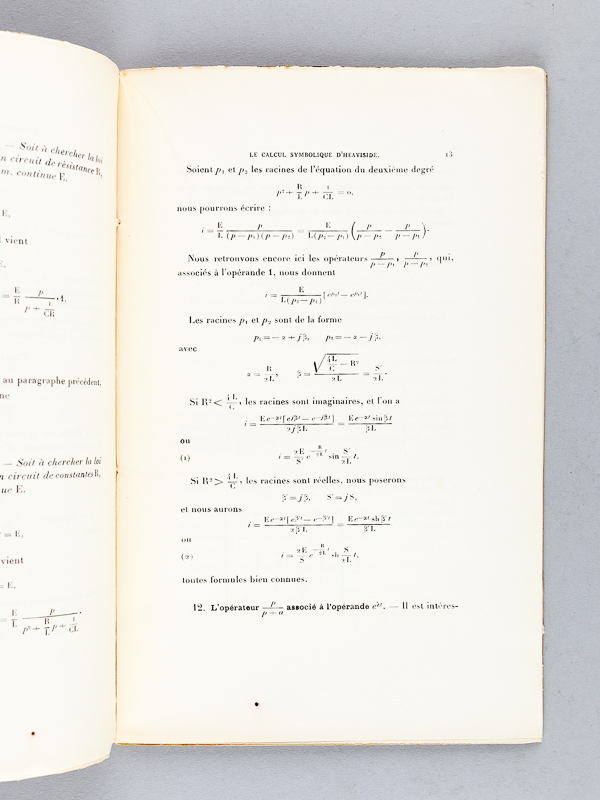 — Soit à chercher la loi
n circuit de résistance R,
m. continue E.
E,
l vient
E,
= E/R p/(p + 1/CR) · 1,
au paragraphe précédent,
ne
— Soit à chercher la loi
n circuit de constantes R,
ue E.
= E,
vient
= E,
= E/L p/(p² + R/L p + 1/CL) .
LE CALCUL SYMBOLIQUE D'HEAVISIDE. 13
Soient p₁ et p₂ les racines de l'équation du deuxième degré
p² + R/L p + 1/CL = 0,
nous pourrons écrire :
i = E/L p/((p − p₁)(p − p₂)) = E/(L(p₂ − p₁)) (p/(p − p₂) − p/(p − p₁)).
Nous retrouvons encore ici les opérateurs p/(p − p₁), p/(p − p₂), qui,
associés à l'opérande 1, nous donnent
Les racines p₁ et p₂ sont de la forme
p₁ = − α + jβ, p₂ = − α − jβ,
avec
α = R/2L, β = √(4L/C − R²)/2L = S/2L.
Si R² < 4L/C, les racines sont imaginaires, et l'on a
i = E e^−αt [e^jβt − e^−jβt]/2jβL = E e^−αt sin βt/βL
ou
(1) i = 2E/S e^−R/2L t sin S/2L t.
Si R² > 4L/C, les racines sont réelles, nous poserons
β' = jβ, S' = jS,
et nous aurons
i = E e^−αt [e^β't − e^−β't]/2β'L = E e^−αt sh β't/β'L
ou
(2) i = 2E/S e^−R/2L t sh S/2L t,
toutes formules bien connues.
12. L'opérateur p/(p + a) associé à l'opérande e^λt. — Il est intéres-